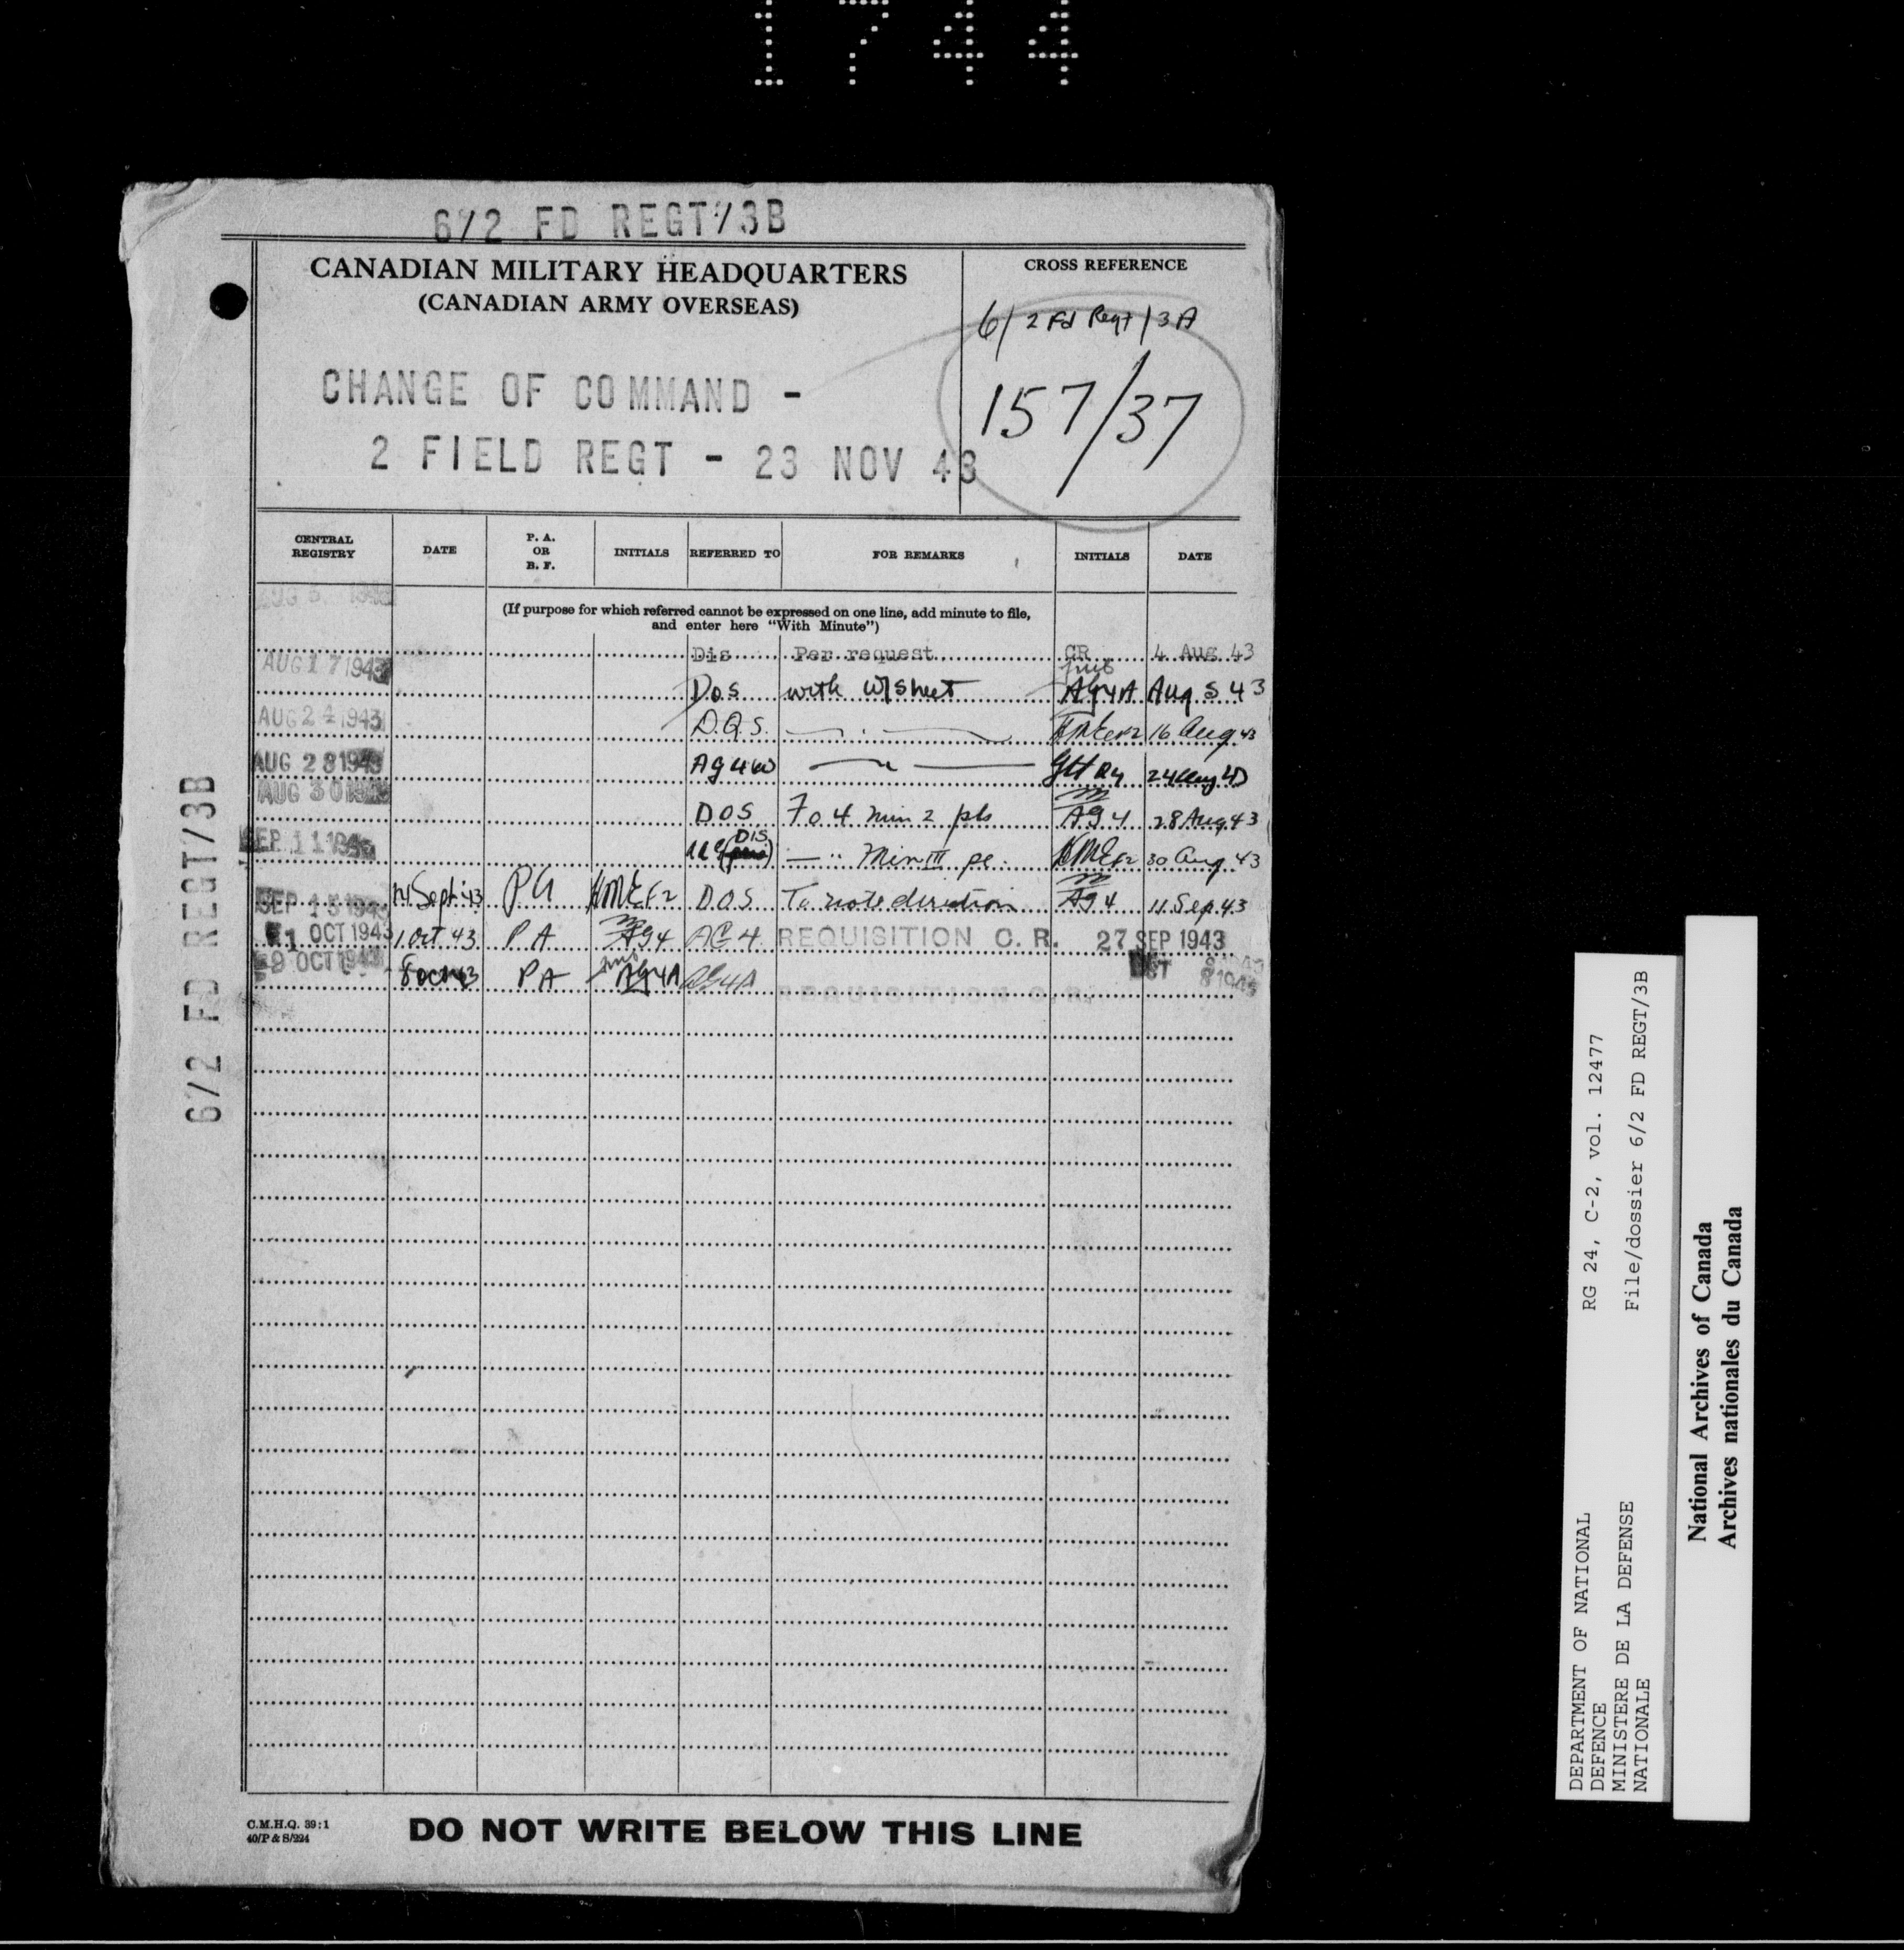 1744
6/2 FD REGT/3B
CANADIAN MILITARY HEADQUARTERS
(CANADIAN ARMY OVERSEAS)
CROSS REFERENCE
6/2 Fd Regt/3A
157/37
CHANGE OF COMMAND -
2 FIELD REGT - 23 NOV 43
CENTRAL REGISTRY DATE P. A. OR B. F. INITIALS REFERRED TO FOR REMARKS INITIALS DATE
(If purpose for which referred cannot be expressed on one line, add minute to file,
and enter here "With Minute")
Dis Per request CR 4 Aug 43
AUG 17 1943
DOS with W/Sheet AG4A Aug 5 43
AUG 24 1943
D.Q.S. 16 Aug 43
AUG 28 1943 AG4 24 Aug 43
AUG 30 1943
DOS 704 min 2 pls AG4 28 Aug 43
SEP 11 1943 DIS Min III pe. 30 Aug 43
SEP 15 1943 14 Sept 43 PA DOS To note direction AG4 11 Sep 43
1 OCT 1943 1 Oct 43 PA AG4 AG4 REQUISITION C.R. 27 SEP 1943
9 OCT 1943 8 Oct 43 PA AG4A AG4A REQUISITION C.R. OCT 8 1943
6/2 FD REGT/3B
C.M.H.Q. 39:1
40/P & S/224
DO NOT WRITE BELOW THIS LINE
DEPARTMENT OF NATIONAL
DEFENCE
MINISTERE DE LA DEFENSE
NATIONALE
RG 24, C-2, vol. 12477
File/dossier 6/2 FD REGT/3B
National Archives of Canada
Archives nationales du Canada